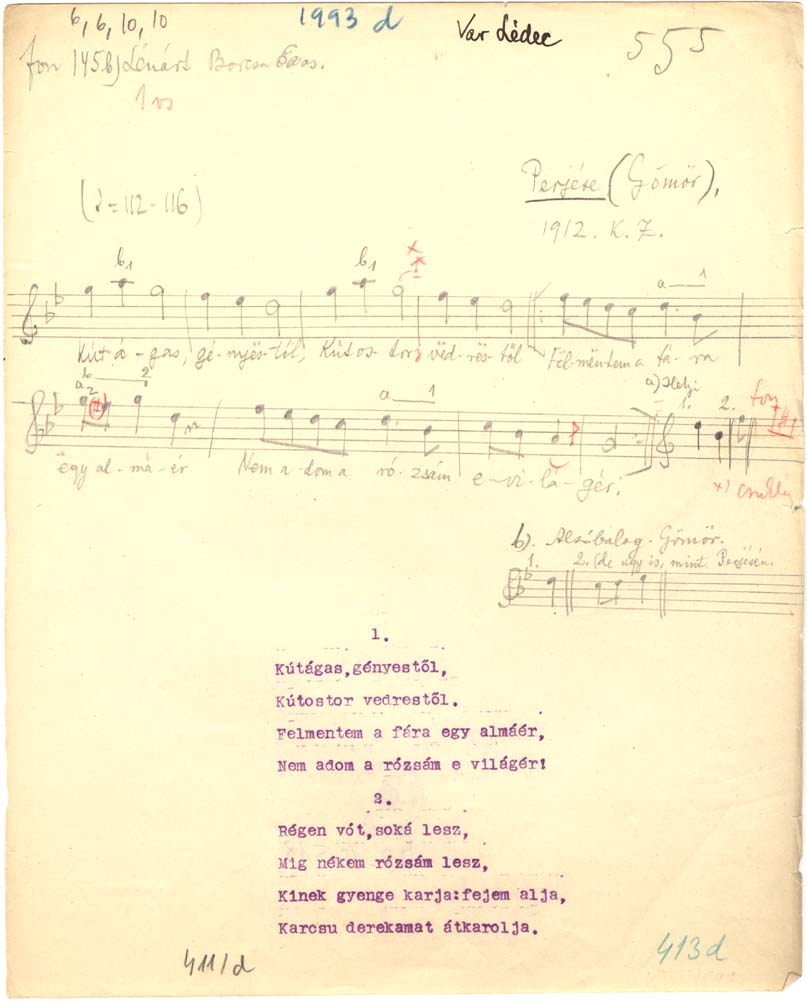 6, 6, 10, 10
1993 d
Var Lédec
555
fon 1456) Lénárt Borcsa
1 vs
Perjése (Gömör),
(♩=112-116)
1912. K. Z.
b1 b1 a 1
Kút-á-gas, gé-nyës-től, Kútos-tor, vëd-rës-től Föl-mëntem a fá-ra
b 2
a 2 a 1 a) Helyi 1. 2. fon
ëgy al-má-ér Nem a-dom a ró-zsám e-vi-lá-gér!
b). Alsóbalog-Gömör.
1. 2. (de úgy is, mint Perjésén.
1.
Kútágas,gényestől,
Kútostor vedrestől.
Felmentem a fára egy almáér,
Nem adom a rózsám e világér!
2.
Régen vót,soká lesz,
Mig nékem rózsám lesz,
Kinek gyenge karja:fejem alja,
Karcsu derekamat átkarolja.
411/d
413d